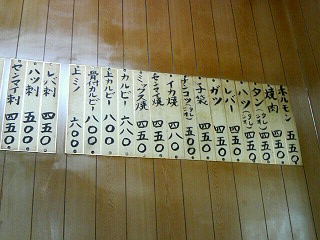 ホルモン 五五〇
焼肉 四五〇
タン(タレ シオ) 四五〇
ハツ(タレ シオ) 四五〇
レバー 四五〇
ガツ 四五〇
子袋 四五〇
ナンコツ(タレ シオ) 五〇〇
イカ焼 四八〇
センマイ焼 四五〇
ミックス焼 四五〇
カルビー 六八〇
上カルビー 八〇〇
骨付カルビー 八〇〇
上ミノ 六〇〇
レバ刺 四五〇
ハツ刺 五〇〇
センマイ刺 四五〇